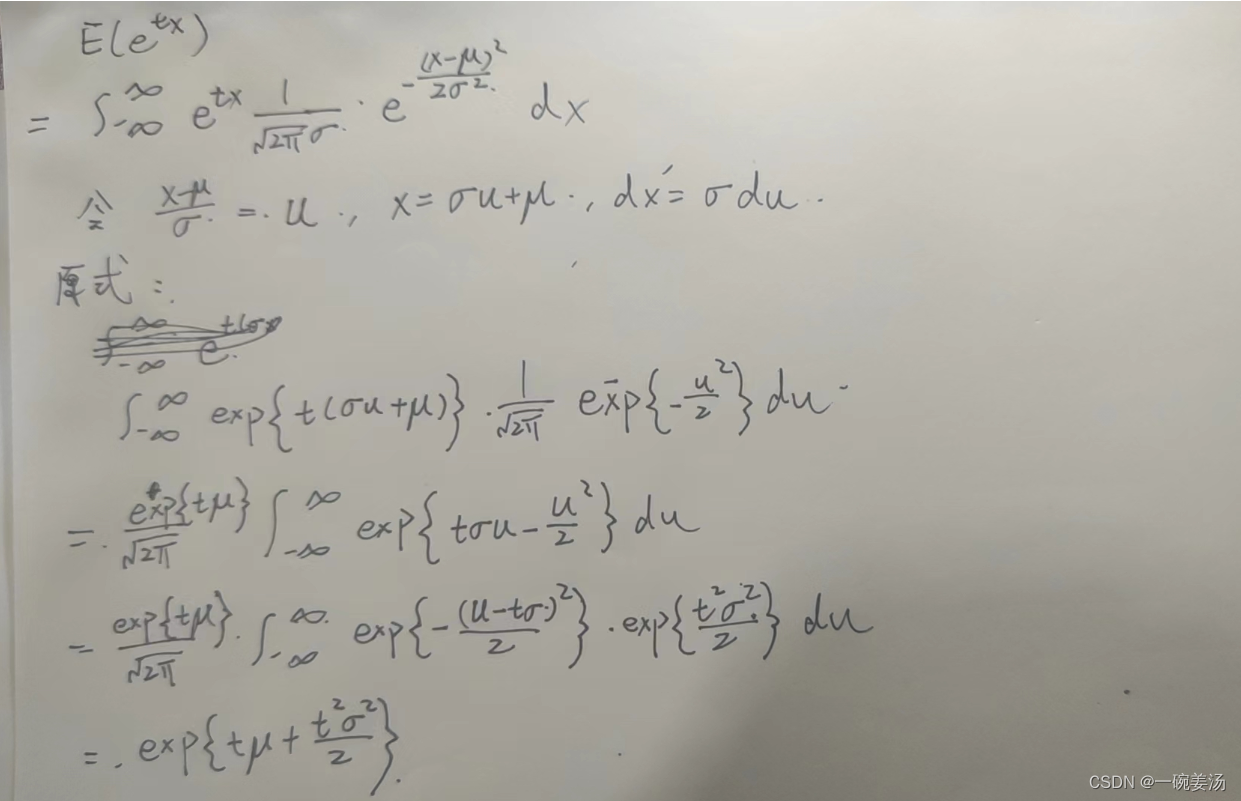 E(e^{tx})
= ∫_{-∞}^{∞} e^{tx} \frac{1}{\sqrt{2π}σ} · e^{-\frac{(x-μ)^2}{2σ^2}} dx
令 \frac{x-μ}{σ} = u, x = σu+μ, dx = σdu
原式:
∫_{-∞}^{∞} exp{t(σu+μ)} · \frac{1}{\sqrt{2π}} exp{-\frac{u^2}{2}} du
= \frac{exp{tμ}}{\sqrt{2π}} ∫_{-∞}^{∞} exp{tσu - \frac{u^2}{2}} du
= \frac{exp{tμ}}{\sqrt{2π}} · ∫_{-∞}^{∞} exp{-\frac{(u-tσ)^2}{2}} · exp{\frac{t^2σ^2}{2}} du
= exp{tμ + \frac{t^2σ^2}{2}}.
CSDN @一碗姜汤